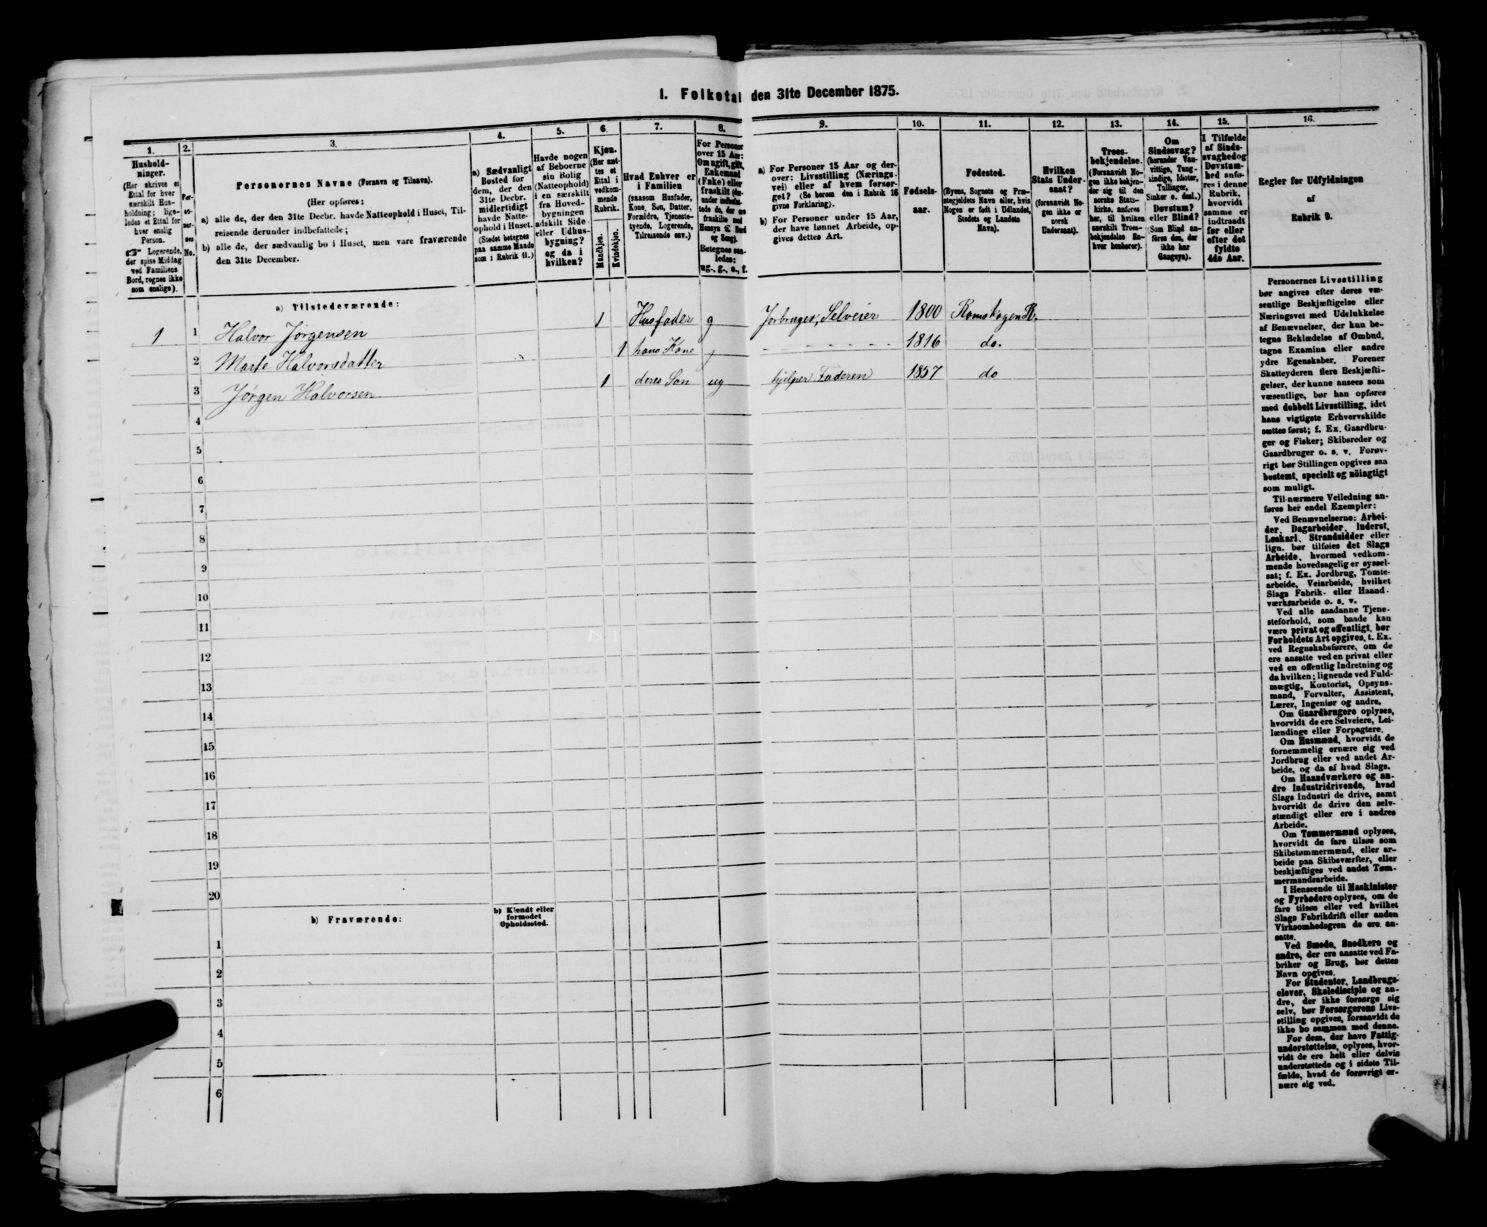 I. Folketal den 31te December 1875.
1.
2.
3.
4.
5.
6.
7.
8.
9.
10.
11.
12.
13.
14.
15.
16.
Hushold-
ninger.
(Her skrives et
Ettal for hver
særskilt Hus-
holdning; lige-
ledes et Ettal for
hver enslig
Person.
☞ Logerende,
der spise Middag
ved Familiens
Bord, regnes ikke
som enslige).
Per-
so-
ner-
nes
No.
Personernes Navne (Fornavn og Tilnavn).
(Her opføres:
a) alle de, der den 31te Decbr. havde Natteophold i Huset, Til-
reisende derunder indbefattede;
b) alle de, der sædvanlig bo i Huset, men vare fraværende
den 31te December.
a) Sædvanligt
Bosted for
dem, der den
31te Decbr.
midlertidigt
havde Natte-
ophold i Huset.
(Stedet betegnes
paa samme Maade
som i Rubrik 11.)
Havde nogen
af Beboerne
sin Bolig
(Natteophold)
i en særskilt
fra Hoved-
bygningen
adskilt Side-
eller Udhus-
bygning?
og da i
hvilken?
Kjøn.
(Her sæt-
tes et
Ettal i
vedkom-
mende
Rubrik.
Mandkjøn.
Kvindekjøn.
Hvad Enhver er
i Familien
(saasom Husfader,
Kone, Søn, Datter,
Forældre, Tjeneste-
tyende, Logerende,
Tilreisende osv.)
For Personer
over 15 Aar:
Om ugift, gift,
Enkemand
(Enke) eller
fraskilt (der-
under indbefat-
tede de, der ere
fraskilte med
Hensyn til Bord
og Seng).
Betegnes saa-
ledes:
ug., g., e., f.
a) For Personer 15 Aar og der-
over: Livsstilling (Nærings-
vei) eller af hvem forsør-
get? (Se herom den i Rubrik 16
givne Forklaring).
b) For Personer under 15 Aar,
der have lønnet Arbeide, op-
gives dettes Art.
Fødsels-
aar.
Fødested.
(Byens, Sognets og Præ-
stegjeldets Navn eller, hvis
Nogen er født i Udlandet,
Stedets og Landets
Navn).
Hvilken
Stats Under-
saat?
(forsaavidt No-
gen ikke er
norsk
Undersaat).
Troes-
bekjendelse.
(Forsaavidt No-
gen ikke bekjen-
der sig til den
norske Stats-
kirke, anføres
her, til hvilken
særskilt Troes-
bekjendelse En-
hver henhører).
Om
Sindssvag?
(herunder Van-
vittige, Tung-
sindige, Idioter,
Tullinger,
Sinker o. desl.)
Døvstum?
eller Blind?
(Som Blind an-
føres den, der
ikke har
Gangsyn).
I Tilfælde
af Sinds-
svaghed og
Døvstum-
hed anfø-
res i denne
Rubrik,
hvorvidt
samme er
indtraadt
før eller
efter det
fyldte
4de Aar.
Regler for Udfyldningen
af
Rubrik 9.
a) Tilstedeværende:
1 1 Halvor Jørgensen 1 Husfader g Jorbruger, Selveier 1800 Romskogen R.
2 Marte Halvorsdatter 1 hans Kone g 1816 do.
3 Jørgen Halvorsen 1 deres Søn ug hjelper Faderen 1857 do
4
5
6
7
8
9
10
11
12
13
14
15
16
17
18
19
20
b) Fraværende:
b) Kjendt eller
formodet
Opholdssted.
1
2
3
4
5
6
Personernes Livsstilling
bør angives efter deres væ-
sentlige Beskjæftigelse eller
Næringsvei med Udelukkelse
af Benævnelser, der kun be-
tegne Beklædelse af Ombud,
tagne Examina eller andre
ydre Egenskaber. Forener
Skatteyderen flere Beskjæfti-
gelser, der kunne ansees som
væsentlige, bør han opføres
med dobbelt Livsstilling, idet
hans vigtigste Erhvervskilde
sættes først; f. Ex. Gaardbru-
ger og Fisker; Skibsreder og
Gaardbruger o. s. v. Forøv-
rigt bør Stillingen opgives saa
bestemt, specielt og nøiagtigt
som muligt.
Til nærmere Veiledning an-
føres her endel Exempler:
Ved Benævnelserne: Arbei-
der, Dagarbeider, Inderst,
Løskarl, Strandsidder eller
lign. bør tilføies det Slags
Arbeide, hvormed vedkom-
mende hovedsagelig er syssel-
sat; f. Ex. Jordbrug, Tomte-
arbeide, Veiarbeide, hvilket
Slags Fabrik- eller Haand-
værksarbeide o. s. v.
Ved alle saadanne Tjene-
steforhold, som baade kan
være privat og offentligt, bør
Forholdets Art opgives, t. Ex.
ved Regnskabsførere, om de
ere ansatte ved en privat eller
ved en offentlig Indretning og
da hvilken; lignende ved Fuld-
mægtig, Kontorist, Opsyns-
mand, Forvalter, Assistent,
Lærer, Ingeniør og andre.
Om Gaardbrugere oplyses,
hvorvidt de ere Selveiere, Lei-
lændinge eller Forpagtere.
Om Husmænd, hvorvidt de
fornemmelig ernære sig ved
Jordbrug eller ved andet Ar-
beide, og da af hvad Slags.
Om Haandværkere og an-
dre Industridrivende, hvad
Slags Industri de drive, samt
hvorvidt de drive den selv-
stændigt eller ere i andres
Arbeide.
Om Tømmermænd oplyses,
hvorvidt de fare tilsøs som
Skibstømmermænd, eller ar-
beide paa Skibsværfter, eller
beskjæftiges ved andet Tøm-
mermandsarbeide.
I Henseende til Maskinister
og Fyrbødere oplyses, om de
fare tilsøs eller ved hvilket
Slags Fabrikdrift eller anden
Virksomhedsgren de ere an-
satte.
Ved Smede, Snedkere og
andre, der ere ansatte ved Fa-
briker og Brug, bør dettes
Navn opgives.
For Studenter, Landbrugs-
elever, Skoledisciple og an-
dre, der ikke forsørge sig
selv, bør Forsørgerens Livs-
stilling opgives, forsaavidt de
ikke bo sammen med denne.
For dem, der have Fattig-
understøttelse, oplyses, hvor-
vidt de ere helt eller delvis
understøttede og i sidste Til-
fælde, hvad de forøvrigt er-
nære sig ved.